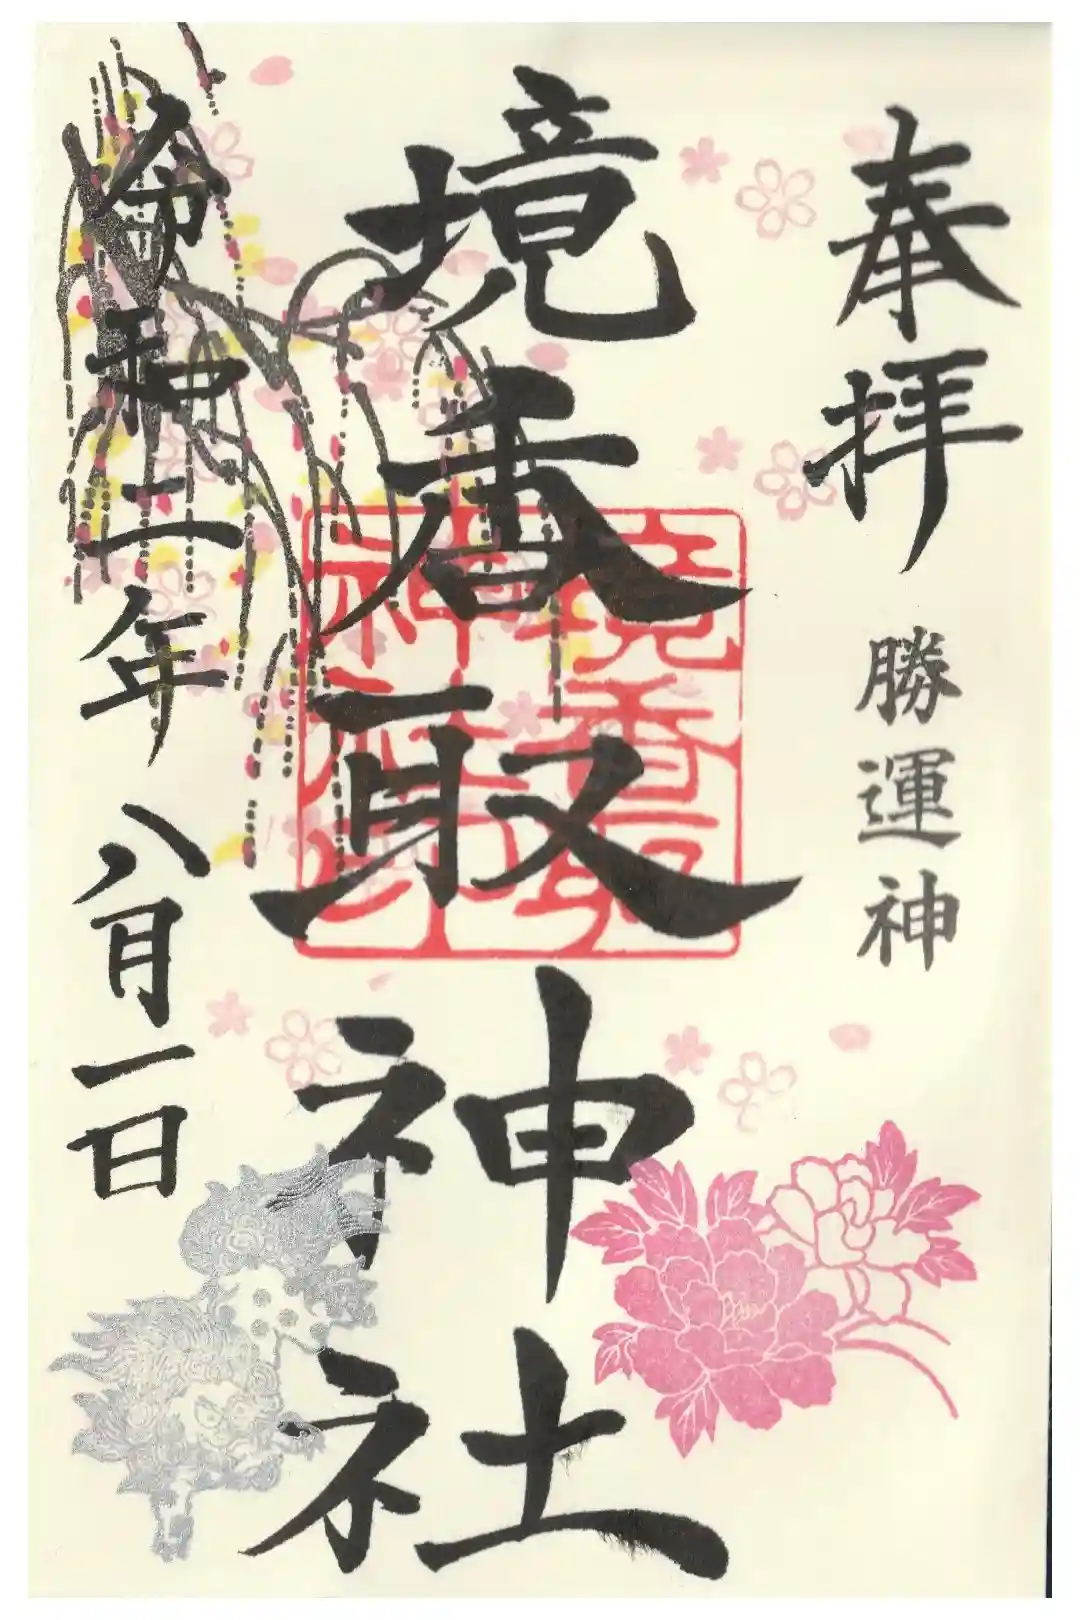 奉拝
勝運神
境香取神社
境香取神社印
令和二年八月一日